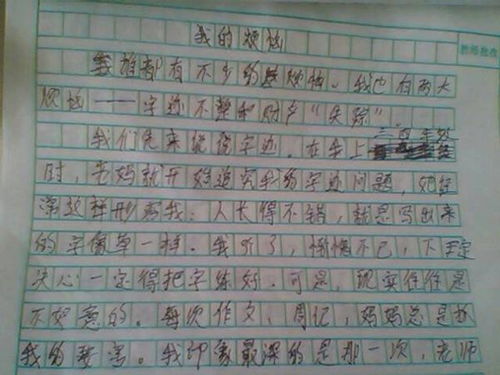 我的烦恼
谁都有不少的烦恼。我也有两大
烦恼——字迹不整和财产“失踪”
我们先来说说字迹。在我上三年级
时,老妈就开始追究我的字迹问题,她经
常这样形容我:人长得不错,就是写出来
的字像草一样。我听了,惭愧不已,下定
决心一定得把字练好。可是,现实往往是
不如意的。每次作文,周记,妈妈总是说
我的字差。我印象最深的是那一次,老师